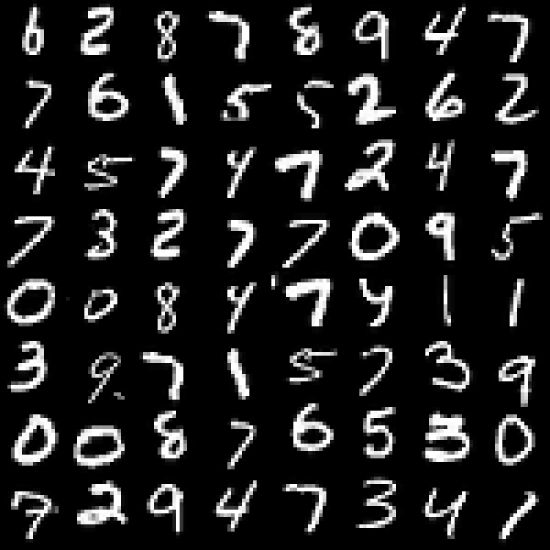 6 2 8 7 8 9 4 7
7 6 1 5 5 2 6 2
4 5 7 4 7 2 4 7
7 3 2 7 7 0 9 5
0 0 8 4 7 4 1 1
3 9 7 1 5 7 3 9
0 0 8 7 6 5 3 0
7 2 9 4 7 3 4 1